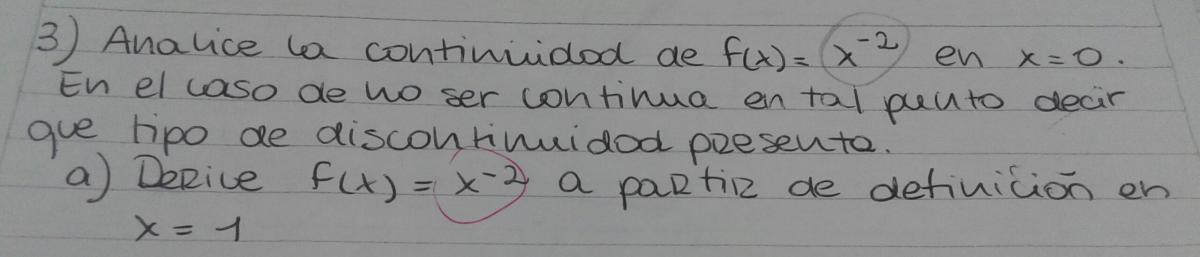 3) Analice la continuidad de f(x) = x⁻² en x = 0.
En el caso de no ser continua en tal punto decir
que tipo de discontinuidad presenta.
a) Derive f(x) = x⁻² a partir de definición en
x = 1